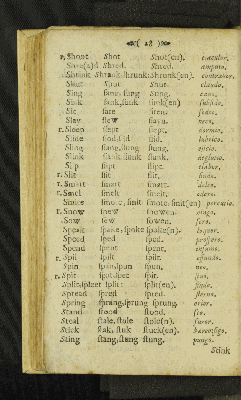 ( 28 )
r. Shout Shot Shot(en). ejaculor.
Shre(a)d Shred. Shred. amputo.
Shrink Shrank, shrunk. Shrunk(en). contrahor.
Shut Shut Shut. claudo.
Sing sang, sung sung. cano.
Sink sank, sunk sunk(en) subsido.
Sit sate sitten. sedeo.
Slay slew slain. neco.
r. Sleep slept slept. dormio.
Slide slod, slid slid. labor.
Sling slang, slung slung.
Slink slank, slunk slunk.
Slip slipt slipt. elabor.
r. Slit slit slit. findo.
r. Smart smart smart. doleo.
r. Smel smelt smelt. oleo.
Smite smote, smit smote, smit(en) percutio.
r. Snow snew snowen. ningo.
Sow sew sowen. sero.
Speak spake, spoke spoke(n). loquor.
Speed sped sped.
Spend spent spent.
r. Spil spilt spilt. effundo.
Spin span, spun spun. neo.
r. Spit spat, spet spit. spuo.
Split, spleet split split(en). findo.
Spread spred spred. sterno.
Spring sprang, sprung sprung. orior.
Stand stood stood. sto.
Steal stale, stole stole(n). furor.
Stick stak, stuk stuck(en).
Sting stang, stung stung. pungo.
Stink